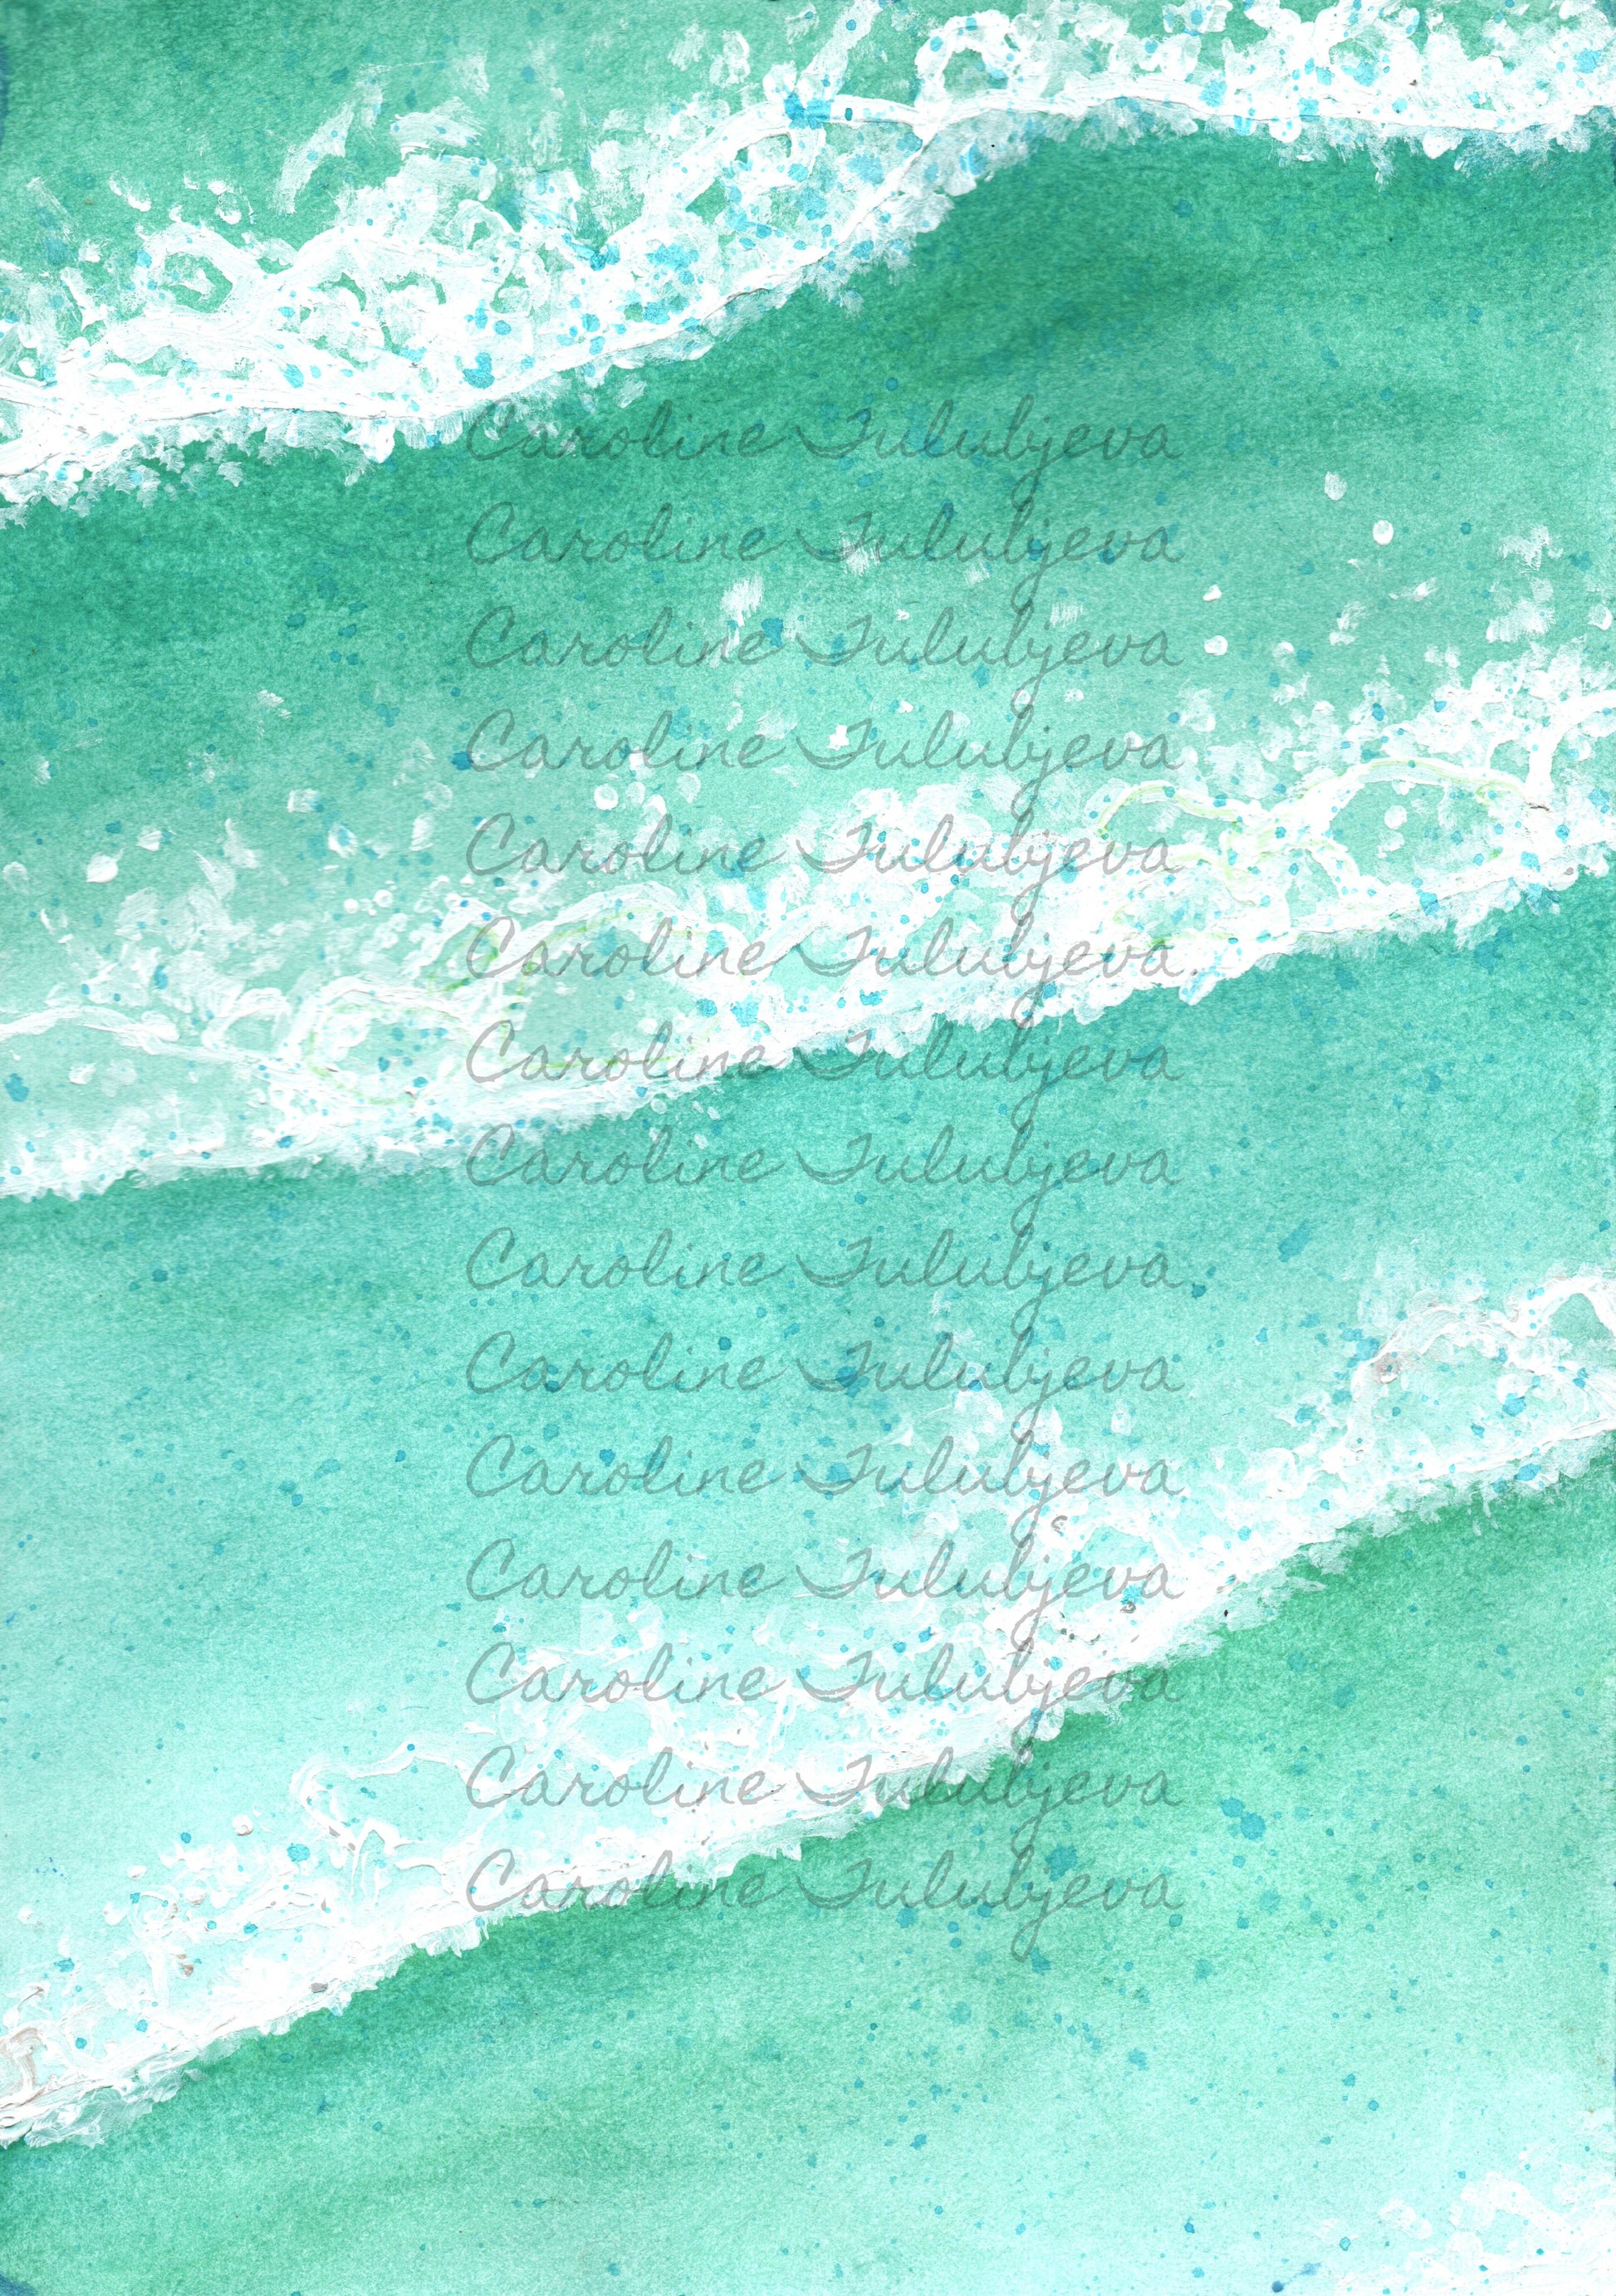 Caroline Tulubjeva
Caroline Tulubjeva
Caroline Tulubjeva
Caroline Tulubjeva
Caroline Tulubjeva
Caroline Tulubjeva
Caroline Tulubjeva
Caroline Tulubjeva
Caroline Tulubjeva
Caroline Tulubjeva
Caroline Tulubjeva
Caroline Tulubjeva
Caroline Tulubjeva
Caroline Tulubjeva
Caroline Tulubjeva